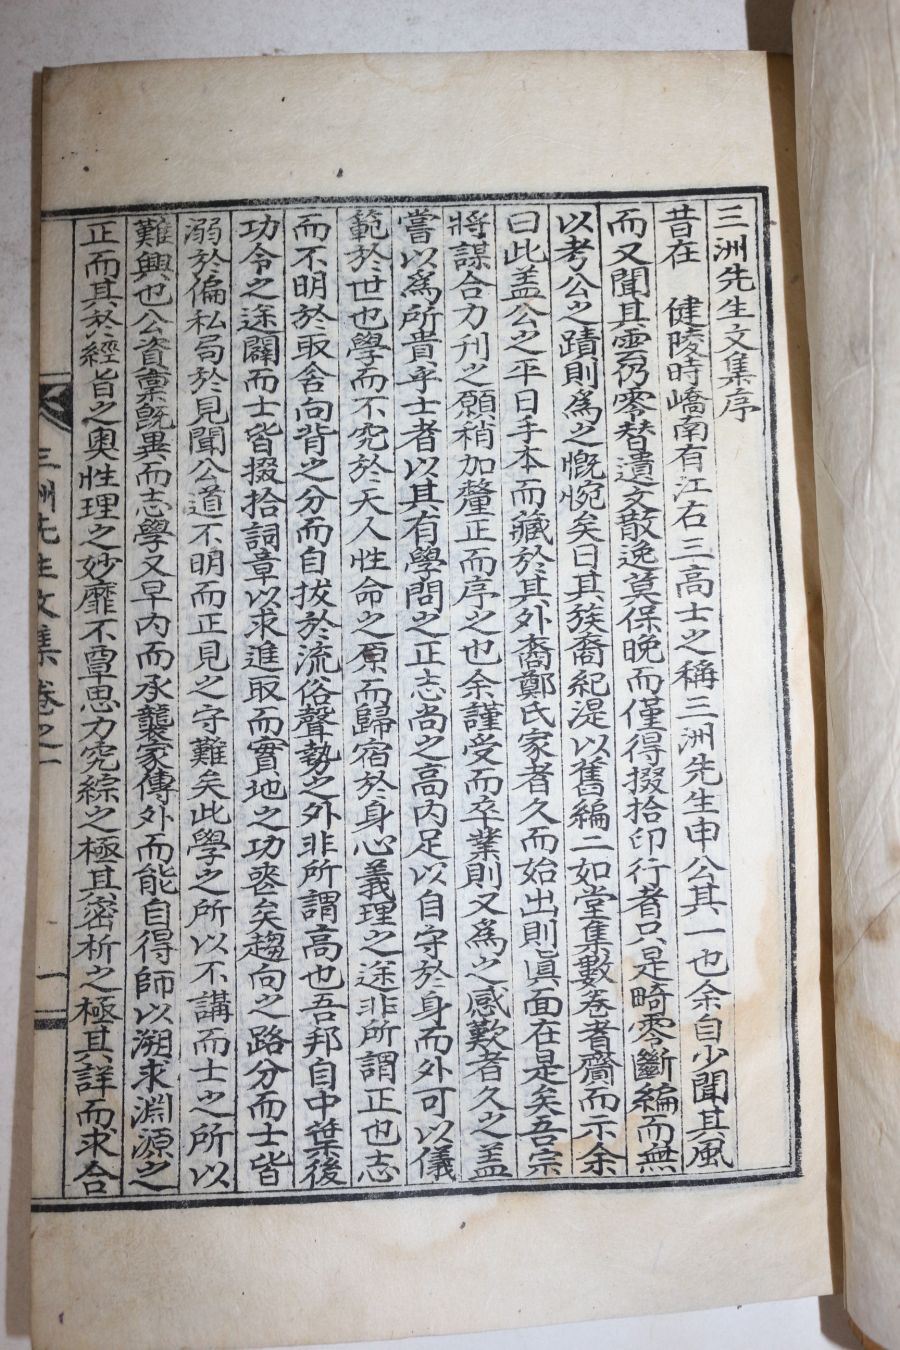 三洲先生文集序
昔在　健陵時嶠南有江右三高士之稱三洲先生申公其一也余自少聞其風
而又聞其雲仍零替遺文散逸莫保晚而僅得掇拾印行者只是畸零斷編而無
以考公之蹟則爲之慨惋矣日其族裔紀湜以舊編二如堂集數卷者齎而示余
曰此盖公之平日手本而藏於其外裔鄭氏家者久而始出則眞面在是矣吾宗
將謀合力刊之願稍加釐正而序之也余謹受而卒業則又爲之感歎者久之盖
嘗以爲所貴乎士者以其有學問之正志尚之高內足以自守於身而外可以儀
範於世也學而不究於天人性命之原而歸宿於身心義理之途非所謂正也志
而不明於取舍向背之分而自拔於流俗聲勢之外非所謂高也吾邦自中葉後
功令之途闢而士皆掇拾詞章以求進取而實地之功衰矣趨向之路分而士皆
溺於偏私局於見聞公道不明而正見之守難矣此學之所以不講而士之所以
難興也公資禀旣異而志學又早內而承襲家傳外而能自得師以溯求淵源之
正而其於經旨之奧性理之妙靡不覃思力究綜之極其密析之極其詳而求合
三洲先生文集卷之一
一